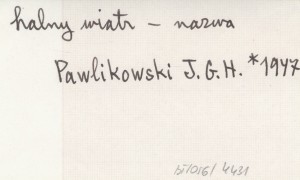 halny wiatr – nazwa
Pawlikowski J. G. H. *1947
bi/016/4431